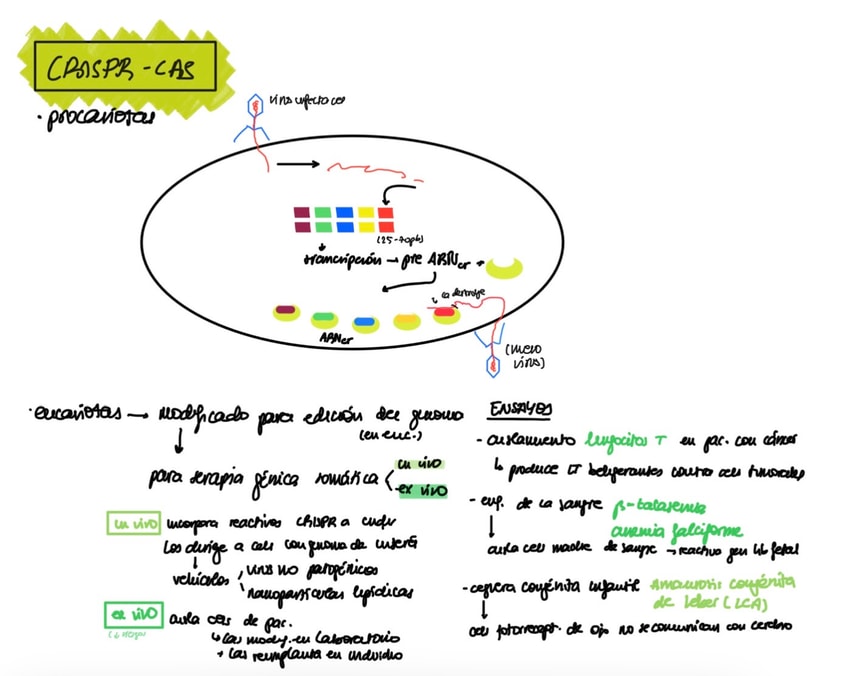 CRISPR-CAS
• procariotas
virus infecta cel
(25-40pb)
transcripción → pre ARNcr +
la destruye
ARNcr
(nuevo
virus)
• eucariotas → modificado para edición del genoma
(en euc.)
para terapia génica somática
in vivo
ex vivo
in vivo
incorpora reactivos CRISPR a
los dirige a cels con genoma de interés
vehículos
virus no patogénicos
nanopartículas lipídicas
ex vivo
aisla cels de pac.
↳ las modif. en laboratorio
+ las reimplanta en individuo
ENSAYOS
- aislamiento linfocitos T en pac. con cáncer
↳ produce LT beligerantes contra cels tumorales
- enf. de la sangre β-talasemia
anemia falciforme
aisla cels madre de sangre → reactiva gen Hb fetal
- ceguera congénita infantil Amaurosis congénita
de Leber (LCA)
cels fotorrecept. de ojo no se comunican con cerebro